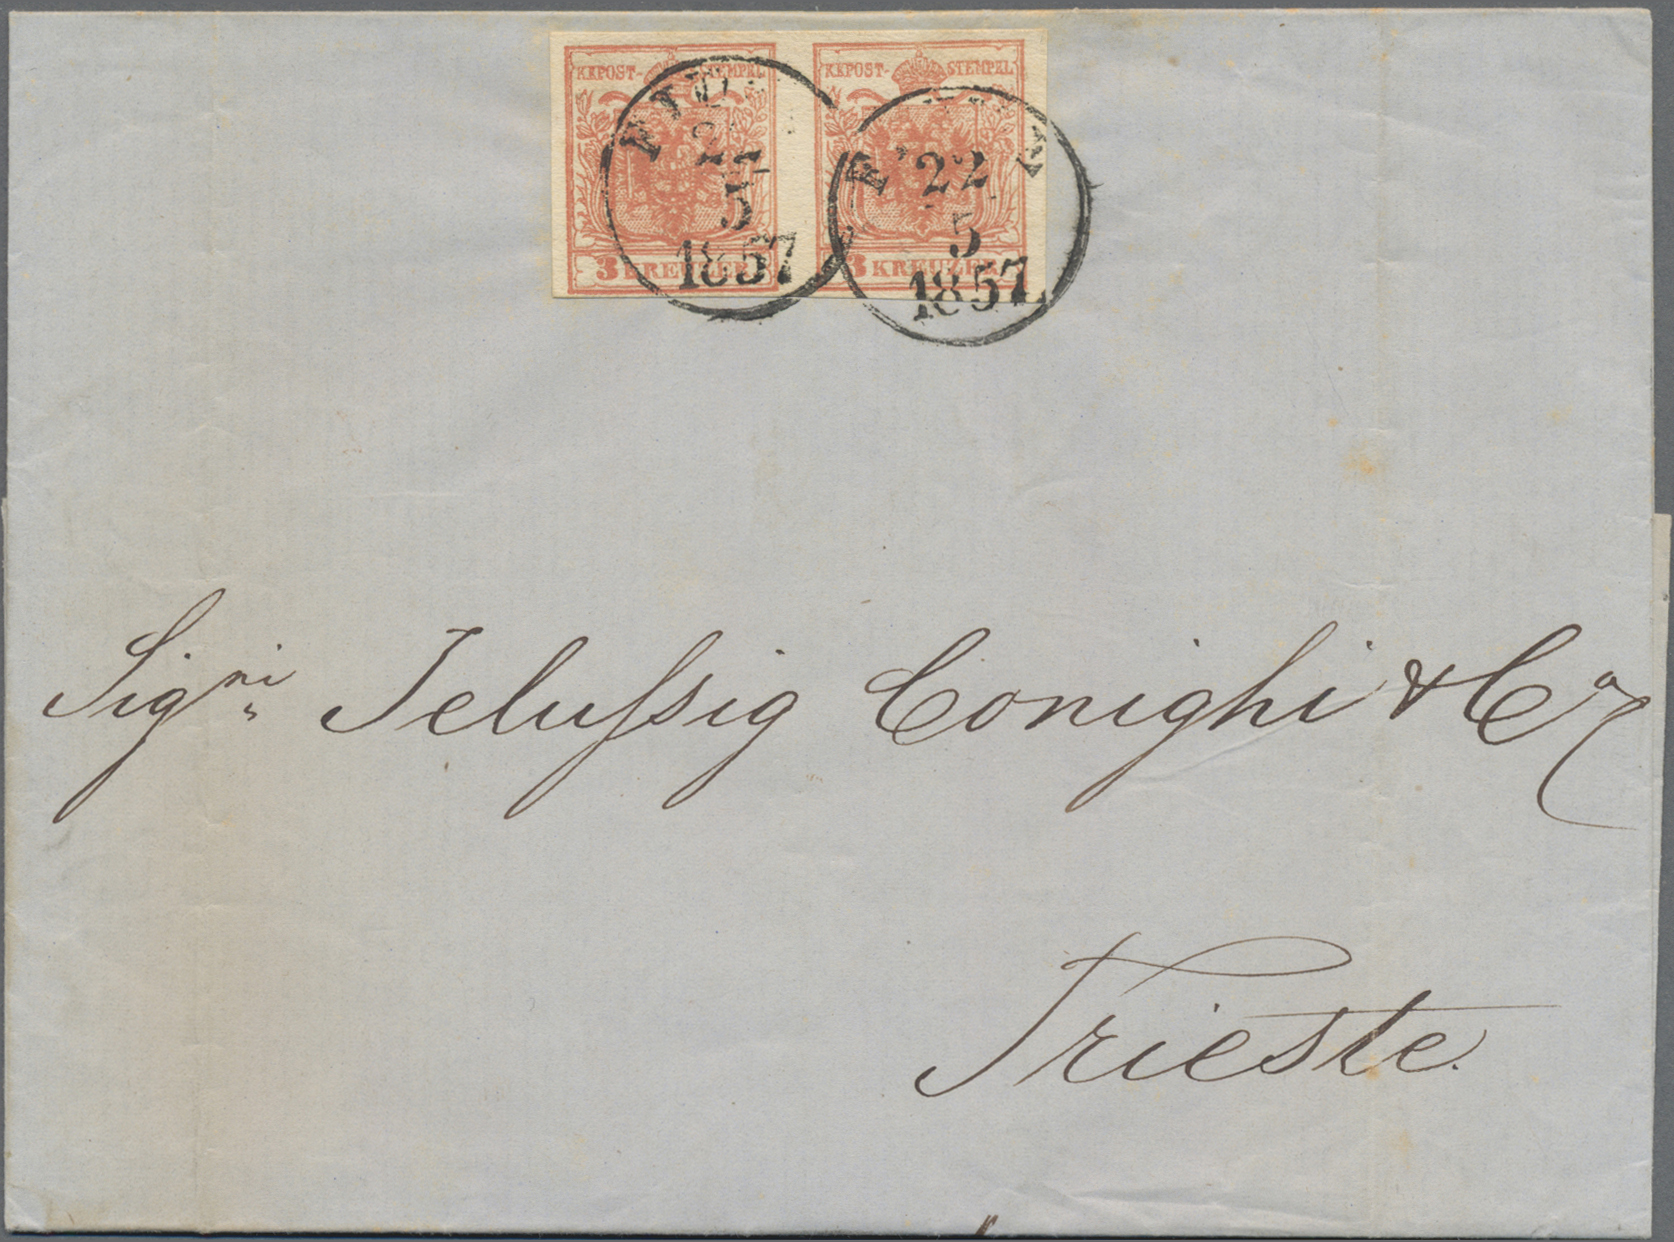 KKPOST-STEMPEL KKPOST-STEMPEL
22
5
1857
22
5
1857
3 KREUZER 3 KREUZER
Signi Jelussig Conighi & Co
Trieste.